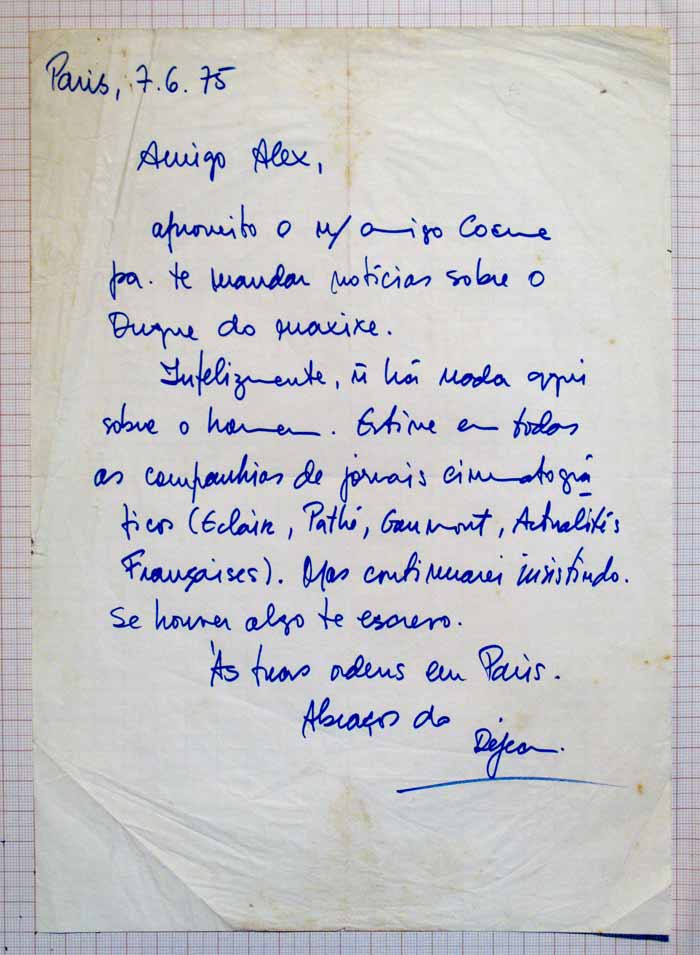 Paris, 7.6.75
Amigo Alex,
aproveito o m/ amigo Cosme
pa. te mandar notícias sobre o
Duque do maxixe.
Infelizmente, ñ há nada aqui
sobre o homem. Estive em todas
as companhias de jornais cinematográ
ficos (Eclair, Pathé, Gaumont, Actualités
Françaises). Mas continuarei insistindo.
Se houver algo te escrevo.
Às tuas ordens em Paris.
Abraços do
Dejean.